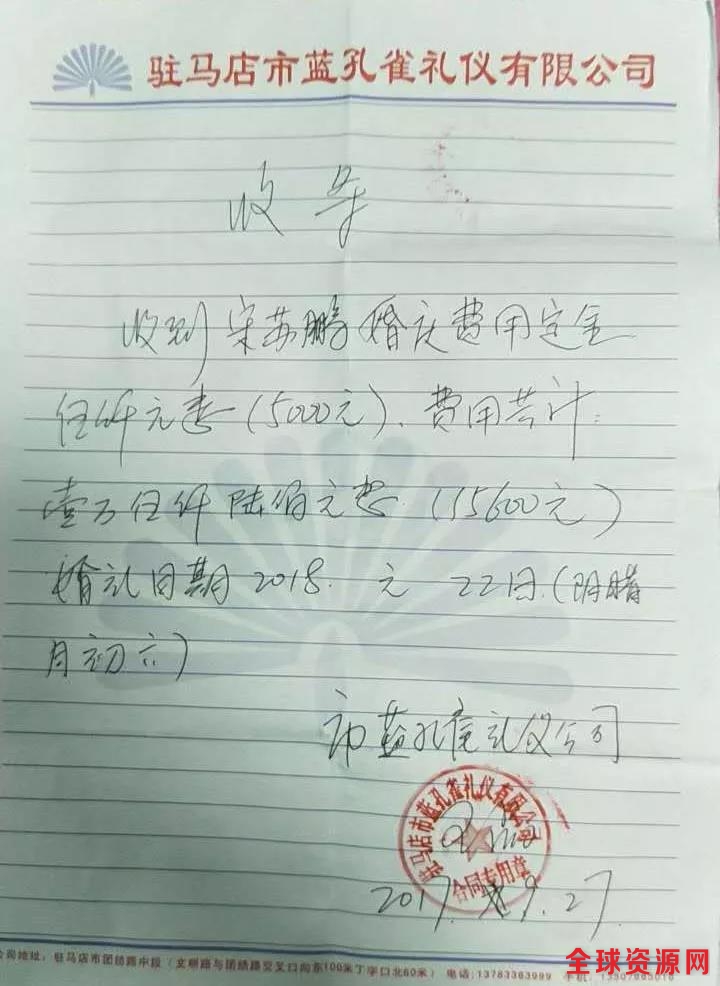 驻马店市蓝孔雀礼仪有限公司
收条
收到宋苏鹏婚庆费用定金
伍仟元整(5000元).费用共计:
壹万伍仟陆佰元整(15600元)
婚礼日期2018.元 22日.(阴腊
月初六)
蓝孔雀礼仪公司
驻马店市蓝孔雀礼仪有限公司
合同专用章
2017.9.27
公司地址:驻马店市团结路中段(文明路与团结路交叉口向东100米丁字口北60米) 电话:13783363999 手机:
全球资源网